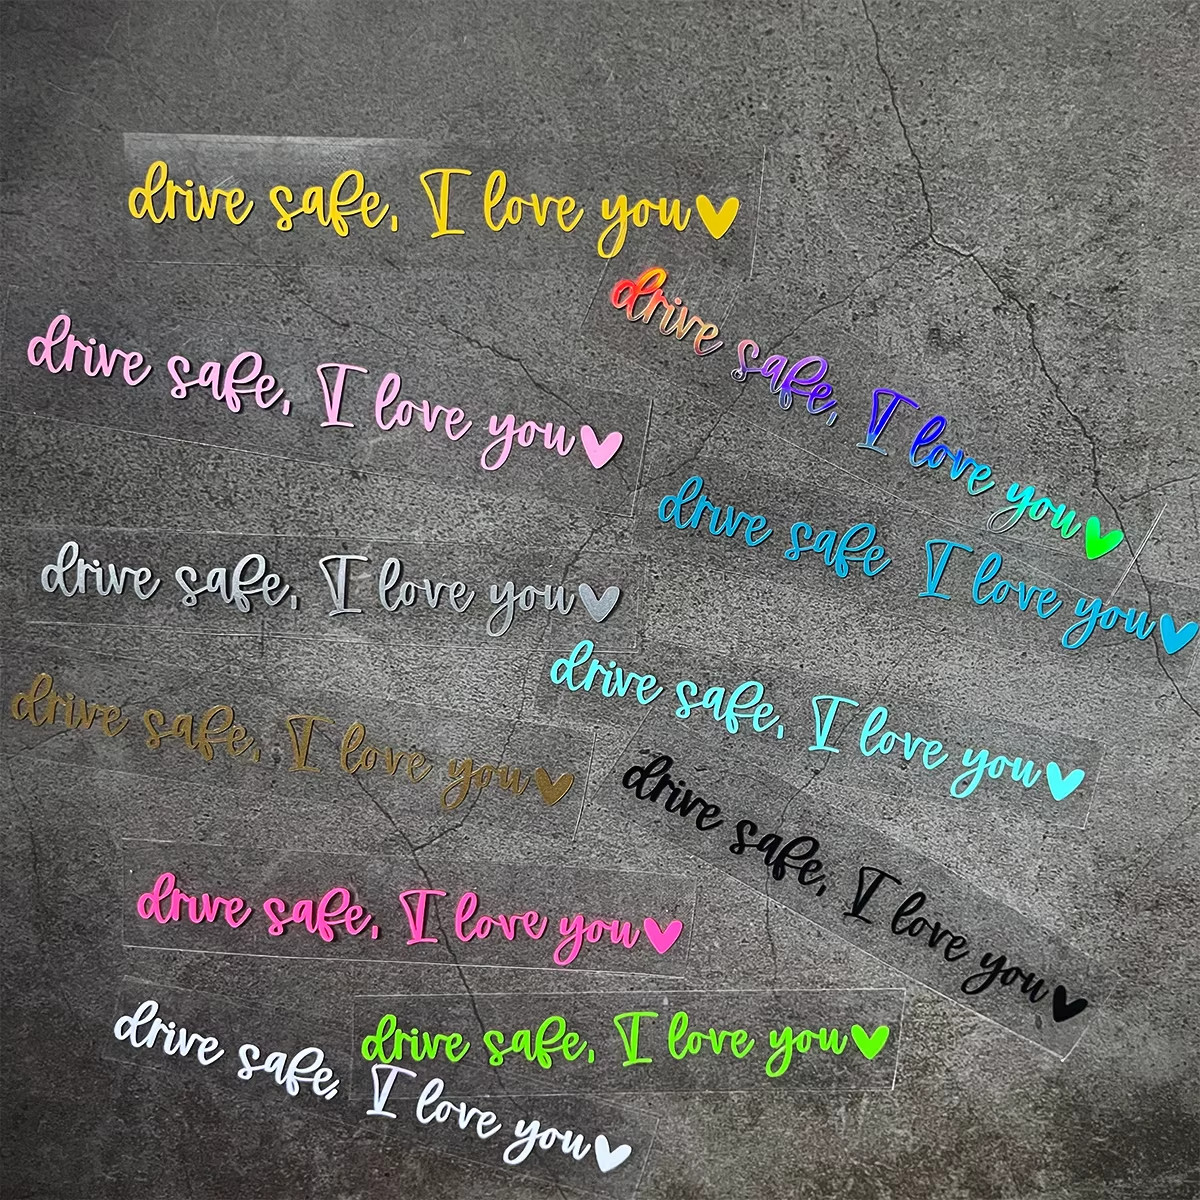 drive safe, I love you
drive safe, I love you
drive safe, I love you
drive safe I love you
drive safe, I love you
drive safe, I love you
drive safe, I love you
drive safe, I love you
drive safe, I love you
drive safe, I love you
drive safe, I love you